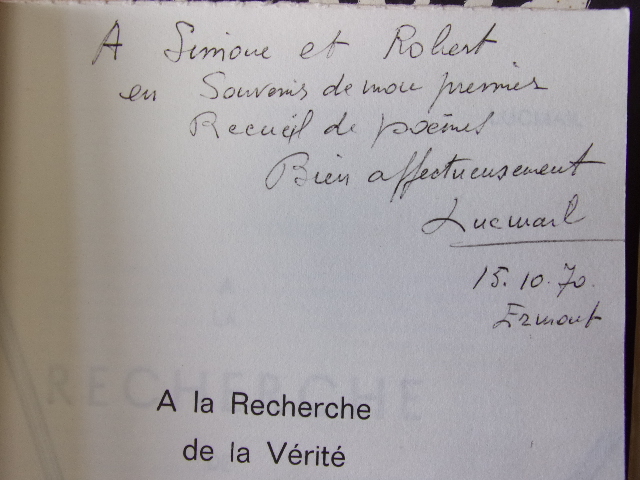 A Simone et Robert
en Souvenir de mon premier
Recueil de poèmes
Bien affectueusement
Lucmail
15.10.70.
Ermont
A
LA
RECHERCHE
A la Recherche
de la Vérité